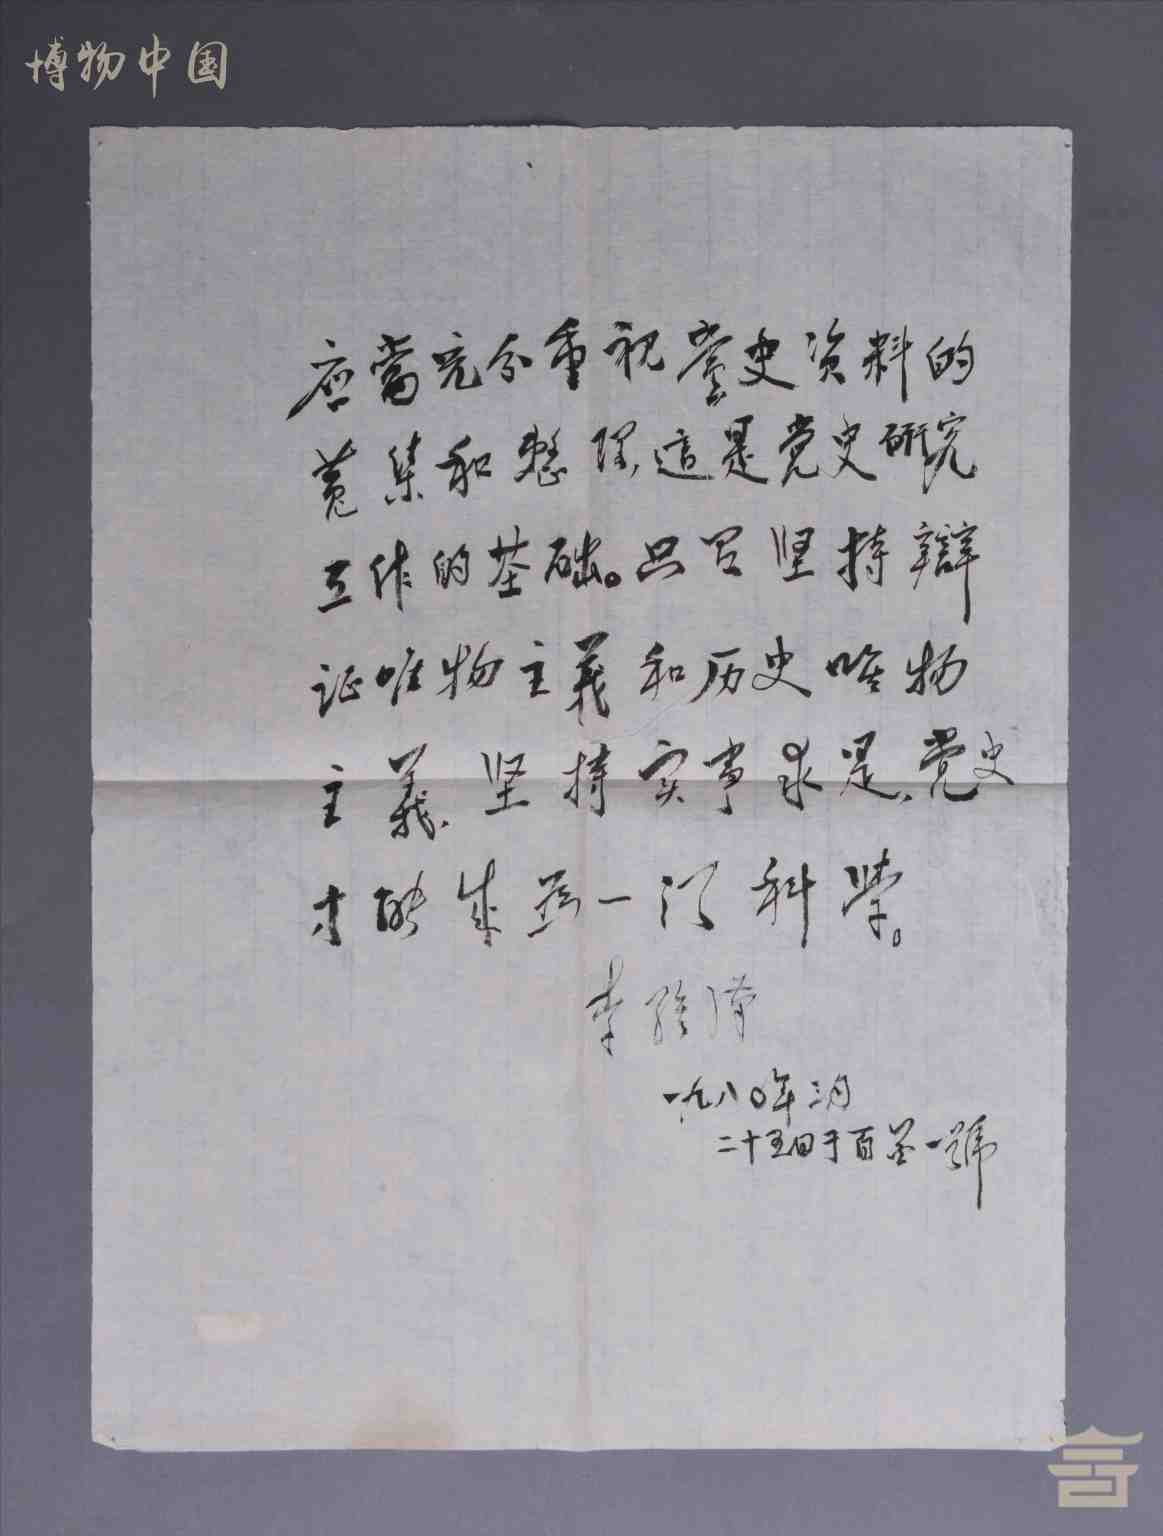 博物中国
应當充分重视党史资料的
蒐集和整理,這是党史研究
工作的基础。只有坚持辯
证唯物主義和历史唯物
主義,坚持实事求是,党史
才能成为一门科学。
李维汉
一九八〇年三月
二十五日于百荃一號